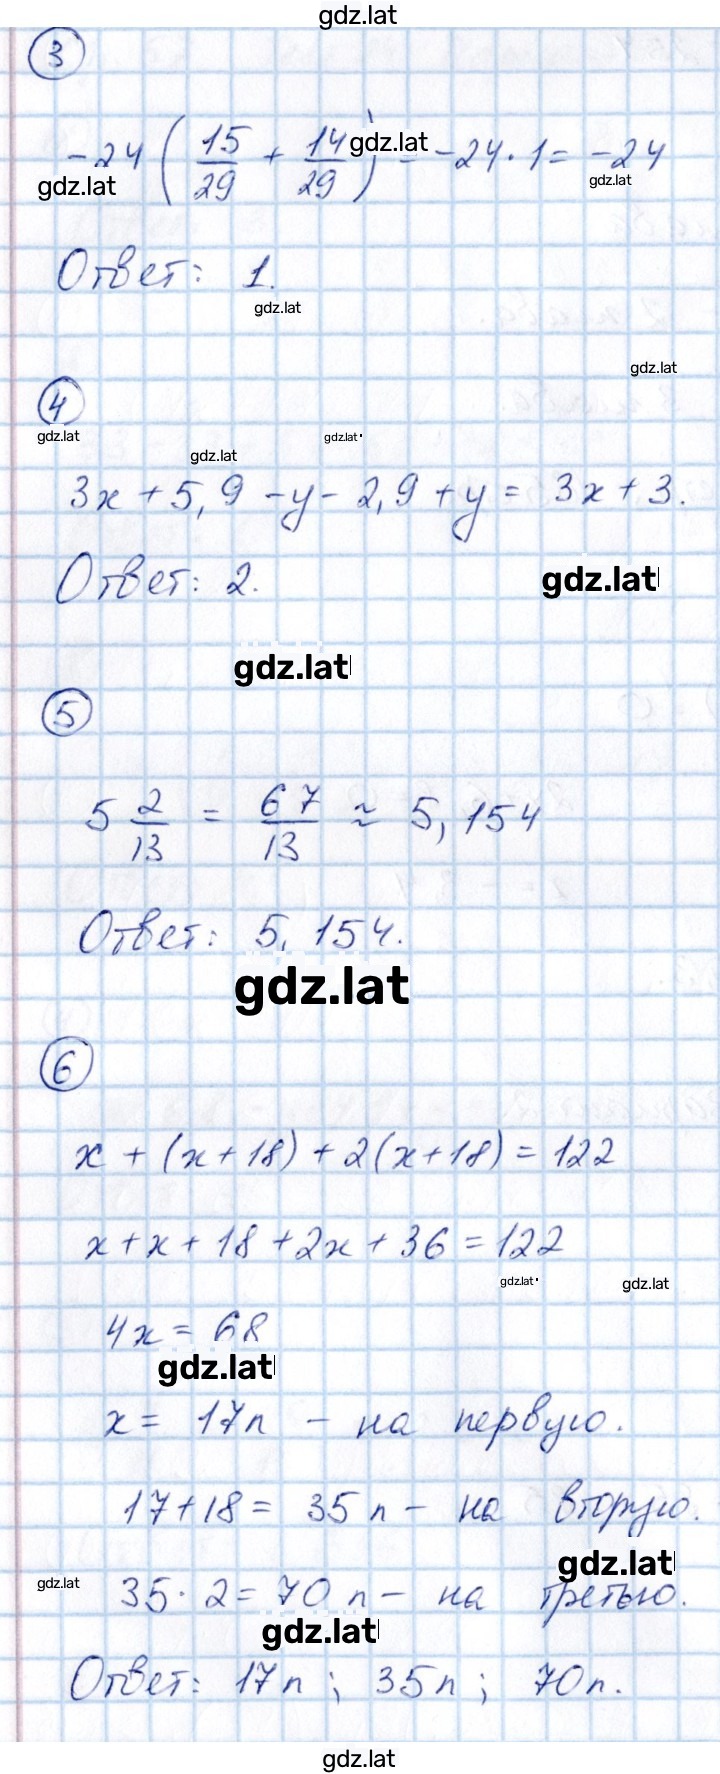 gdz.lat
3
-24 (15/29 + 14/29) = -24 · 1 = -24
gdz.lat
gdz.lat
gdz.lat
Ответ: 1.
gdz.lat
gdz.lat
4
gdz.lat
gdz.lat
gdz.lat
3x + 5,9 - y - 2,9 + y = 3x + 3.
Ответ: 2.
gdz.lat
gdz.lat
5
5 2/13 = 67/13 ≈ 5,154
Ответ: 5,154.
gdz.lat
6
x + (x+18) + 2(x+18) = 122
x + x + 18 + 2x + 36 = 122
gdz.lat
gdz.lat
4x = 68
gdz.lat
x = 17 п - на первую.
17+18 = 35 п - на вторую.
gdz.lat
gdz.lat
35 · 2 = 70 п - на третью.
gdz.lat
Ответ: 17 п ; 35 п ; 70 п.
gdz.lat